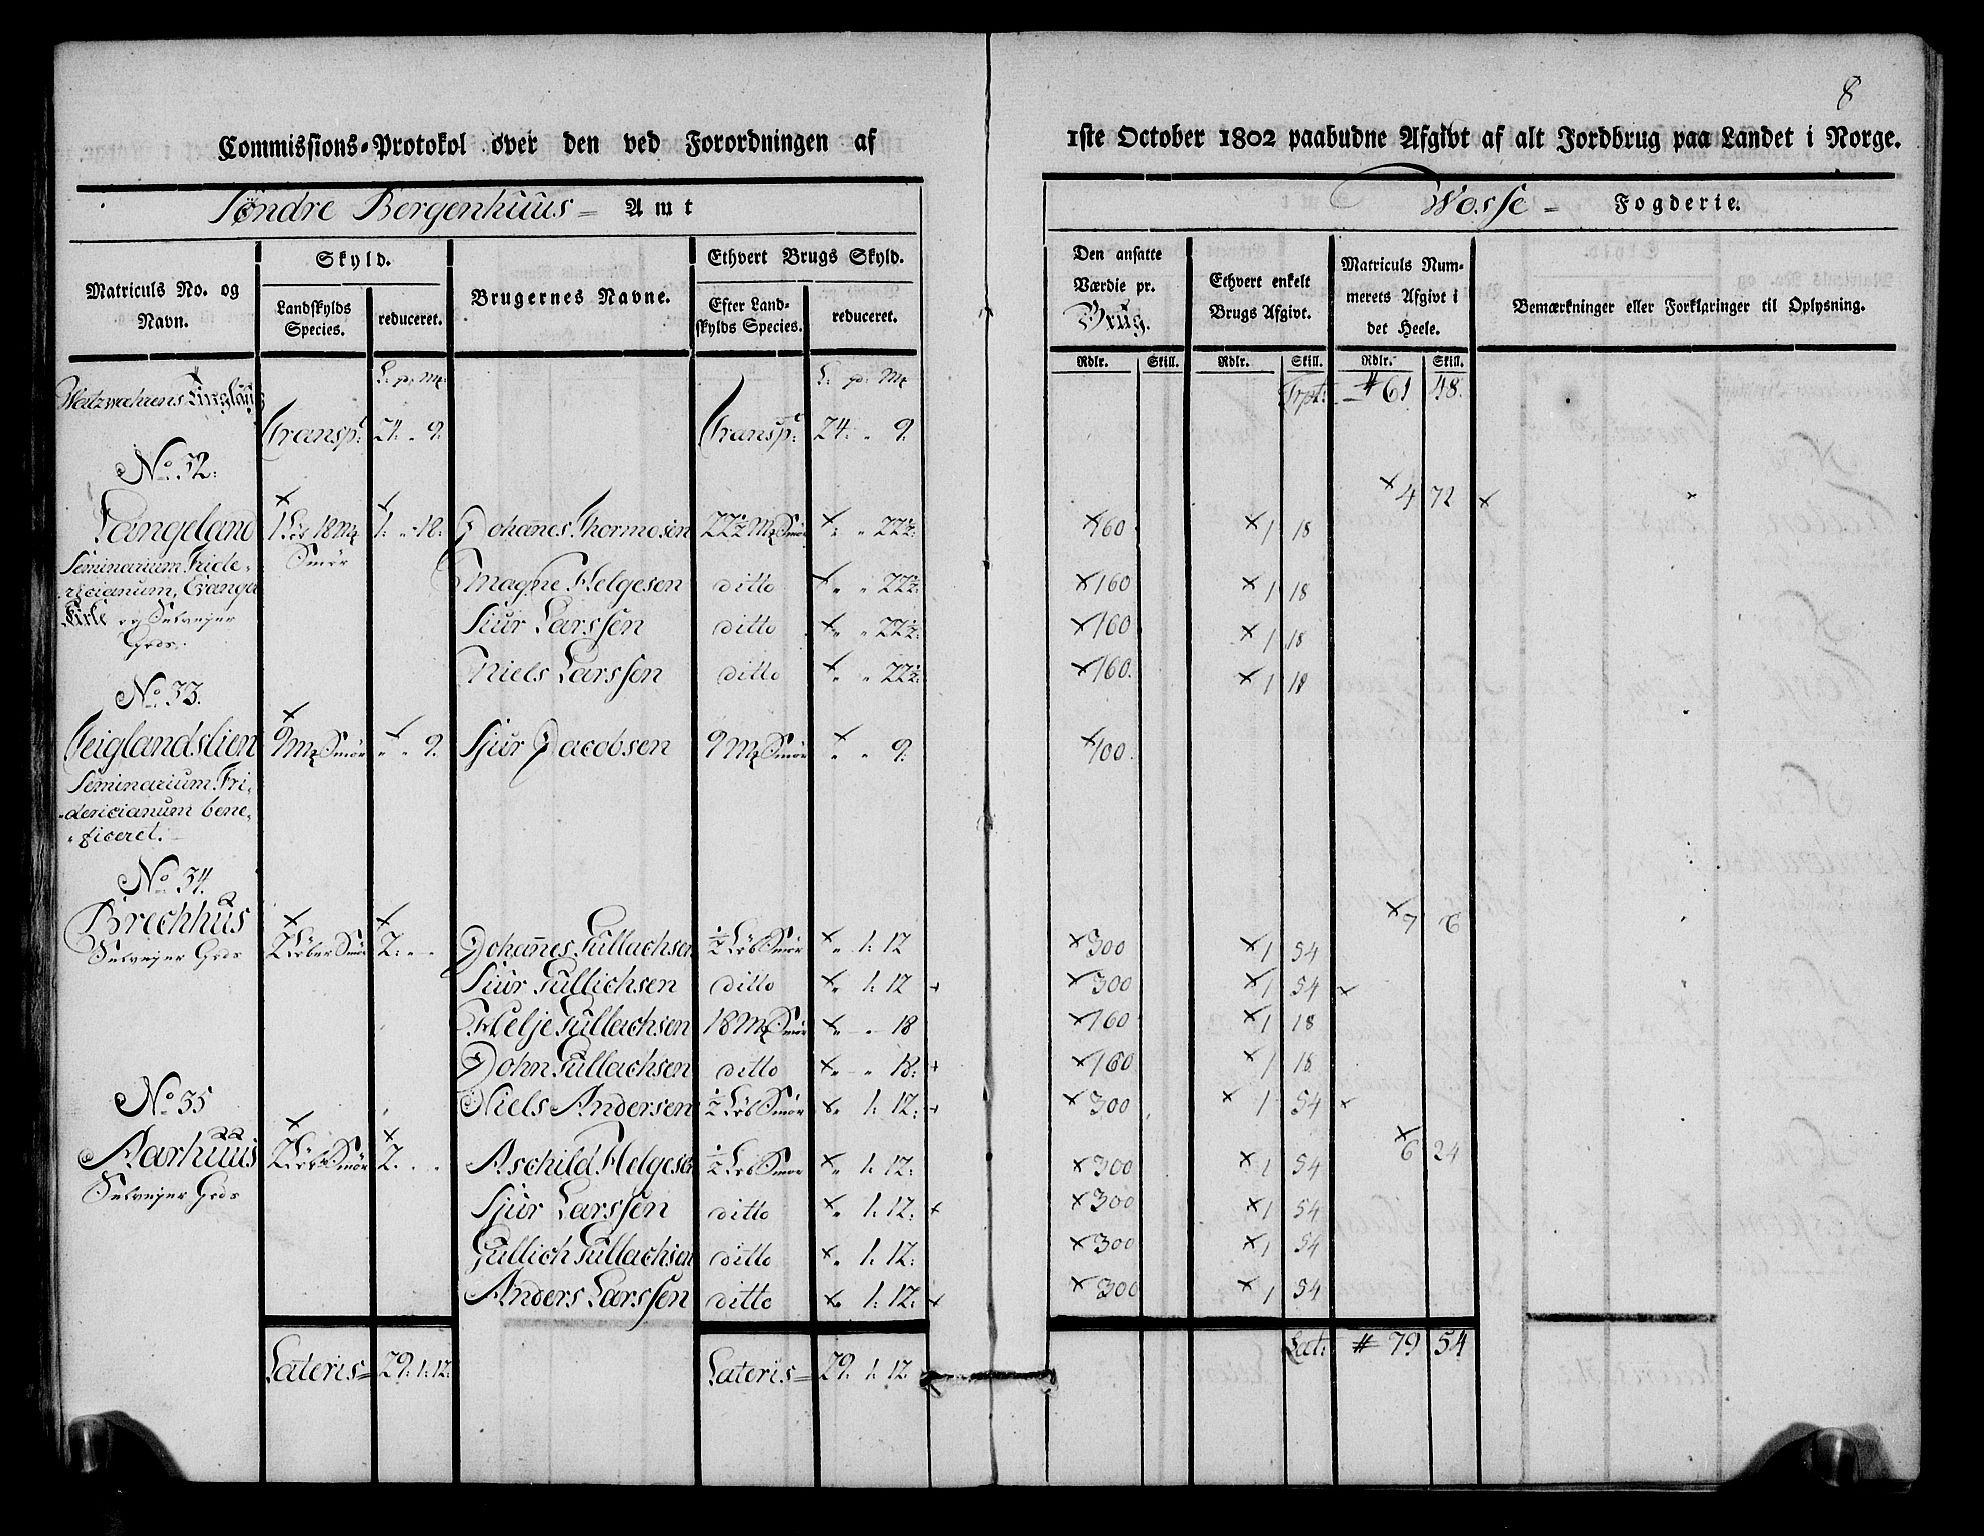 8
Commissions-Protokol over den ved Forordningen af 1ste October 1802 paabudne Afgivt af alt Jordbrug paa Landet i Norge.
Söndre Bergenhuus = Amt
Wosse = Fogderie.
Matriculs No. og Navn.
Skyld.
Landskylds Species.
reduceret.
Brugernes Navne.
Ethvert Brugs Skyld.
Efter Landskylds Species.
reduceret.
Den ansatte Værdie pr. Brug.
Ethvert enkelt Brugs Afgivt.
Matriculs Nummerets Afgivt i det Heele.
Bemærkninger eller Forklaringer til Oplysning.
Rdlr. Skill. Rdlr. Skill. Rdlr. Skill.
L: p: Mk: L: p: Mk
Tinglaug Trpt: # 61 48.
Transpt: 24: " 9. Transpt: 24: " 9.
No. 32: × 4 72 ×
Langeland × 1 Löb 18 Mk Smör × 1: " 18: Johanes Thormosen 22½ Mk Smör × " " 22½: × 160 × 1 18
Seminarium Fride-
ricianum, Evanger Magne Helgesen ditto × " " 22½: × 160 × 1 18
Kirke og Selvejer Siur Larssen ditto × " " 22½: × 160 × 1 18
Grds. Niels Larssen ditto × " " 22½: × 160. × 1 18
No. 33.
Teiglandslien × 9 Mk Smör × " " 9. Sjur Jacobsen 9 Mk Smör × " " 9. × 100.
Seminarium Fri-
dericianum bene-
ficeret.
No. 34.
Brechhus × 7 6
Selvejer Grds × 2 Löber Smör × 2: " " Johannes Gullachsen ½ Löb Smör × " 1: 12 × 300 × 1 54
Siur Gullichsen ditto × " 1: 12 + × 300 × 1 54 ×
Helje Gullachsen 18 Mk Smör × " " 18 × 160 × 1 18
John Gullachsen ditto × " " 18: + × 160 × 1 18
No. 35 Niels Andersen ½ Löb Smör × " 1: 12: + × 300 × 1 54 ×
Aarhuus × 2 Löb Smör × 2. " " Aschild Helgesen ½ Löb Smör × " 1: 12: × 300 × 1 54 × 6 24
Selvejer Grds Sjur Larssen ditto × " 1: 12: × × 300 × 1 54
Gullich Gullachsen ditto × " 1: 12: × 300 × 1 54
Anders Larssen ditto × " 1: 12: × × 300 × 1 54
Lateris = 29: 1: 12: Lateris = 29. 1. 12 Lat: # 79 54